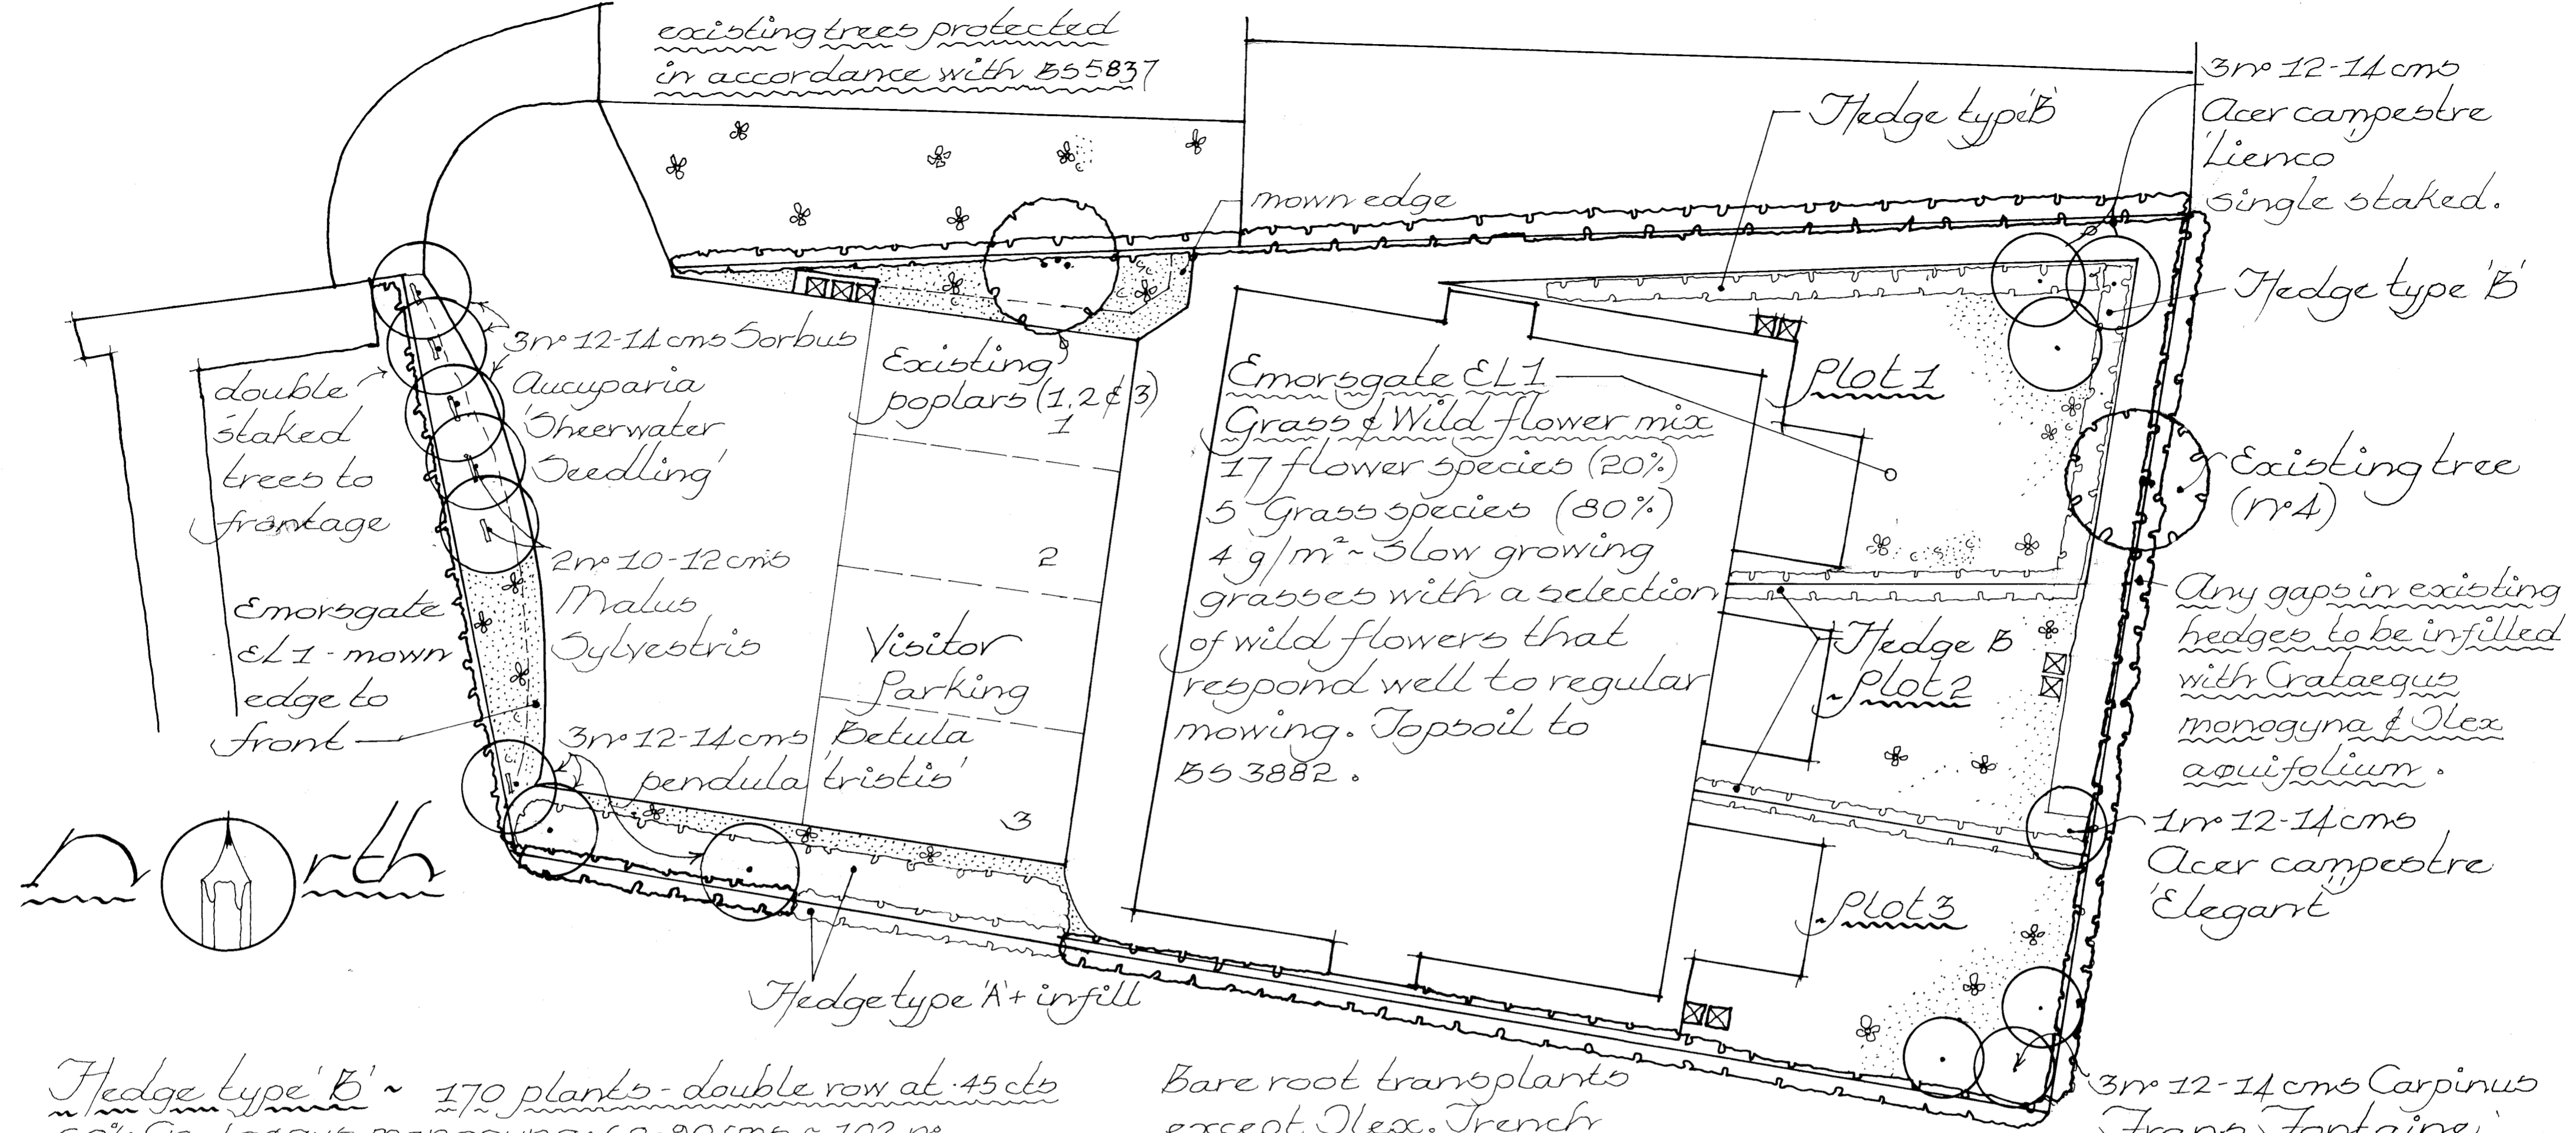 existing trees protected
in accordance with BS5837
3nº 12-14cms
Acer campestre
'Lienco
single staked.
Hedge type 'B'
mown edge
Hedge type 'B'
3nº 12-14cms Sorbus
Aucuparia
'Sheerwater
Seedling'
double
staked
trees to
frontage
Existing
poplars (1,2 & 3)
1
2
Visitor
Parking
3
Emorsgate EL1
Grass & Wild flower mix
17 flower species (20%)
5 Grass species (80%)
4 g/m² ~ Slow growing
grasses with a selection
of wild flowers that
respond well to regular
mowing. Topsoil to
BS 3882.
Plot 1
Existing tree
(nº 4)
2nº 10-12cms
Malus
Sylvestris
Emorsgate
EL1 - mown
edge to
front
Any gaps in existing
hedges to be infilled
with Crataegus
monogyna & Ilex
aquifolium.
Hedge B
~Plot 2
3nº 12-14cms Betula
pendula 'tristis'
1nº 12-14cms
Acer campestre
'Elegant'
~Plot 3
north
Hedge type 'A' + infill
Hedge type 'B' ~ 170 plants - double row at .45 cts
Bare root transplants
except Ilex. Trench
3nº 12-14cms Carpinus
'Frans Fontaine'